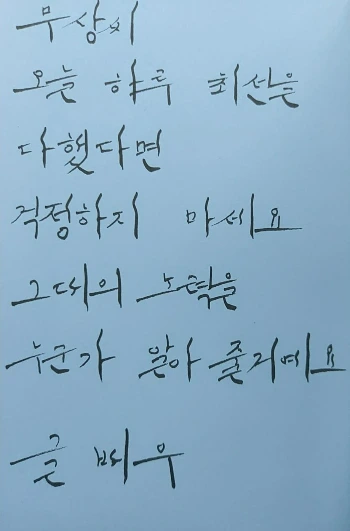 무상씨
오늘 하루 최선을
다했다면
걱정하지 마세요
그대의 노력을
누군가 알아 줄거예요
글 배우